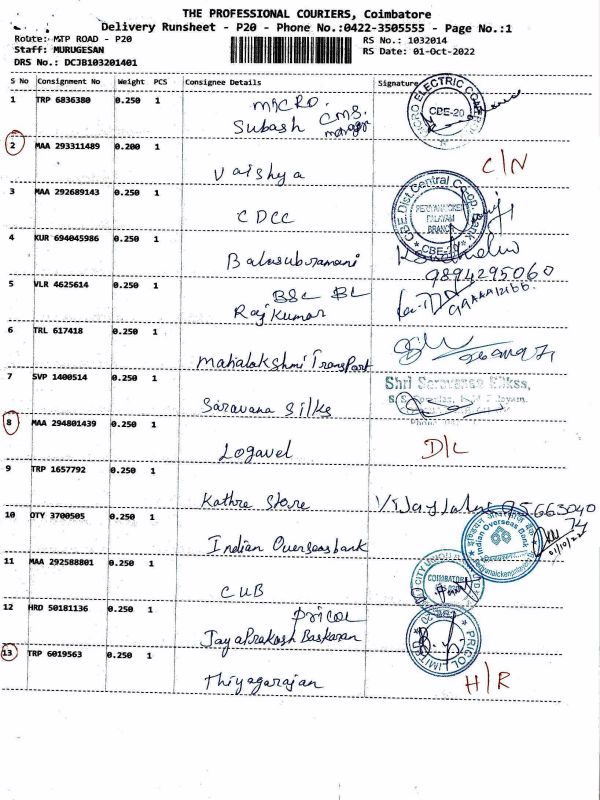 THE PROFESSIONAL COURIERS, Coimbatore
Delivery Runsheet - P20 - Phone No.:0422-3505555 - Page No.:1
Route: MTP ROAD - P20 RS No.: 1032014
Staff: MURUGESAN RS Date: 01-Oct-2022
DRS No.: DCJB103201401
S No Consignment No Weight PCS Consignee Details Signature
1 TRP 6836380 0.250 1 MICRO.
Subash CMS. manager
MICRO ELECTRIC CBE-20
2 MAA 293311489 0.200 1
Vaishya C/N
3 MAA 292689143 0.250 1
CDCC
CBE. Dist. Central Co-op. Bank PALAYAM BRANCH
4 KUR 694045986 0.250 1
Balasubramani
9894295060
5 VLR 4625614 0.250 1 BSC BL
Rajkumar
6 TRL 617418 0.250 1
Mahalakshmi Transport
7 SVP 1400514 0.250 1 Shri Saravanaa Silkss,
Saravana Silks
8 MAA 294801439 0.250 1
Logavel D/L
9 TRP 1657792 0.250 1
Kathre Store
10 OTY 3700505 0.250 1
Indian Overseas bank
Indian Overseas Bank
01/10/22
11 MAA 292588801 0.250 1
CUB
CITY UNION COIMBATORE
12 HRD 50181136 0.250 1 Pricol
JayaPrakash Baskaran
PRICOL LIMITED
13 TRP 6019563 0.250 1
Thiyagarajan H/R